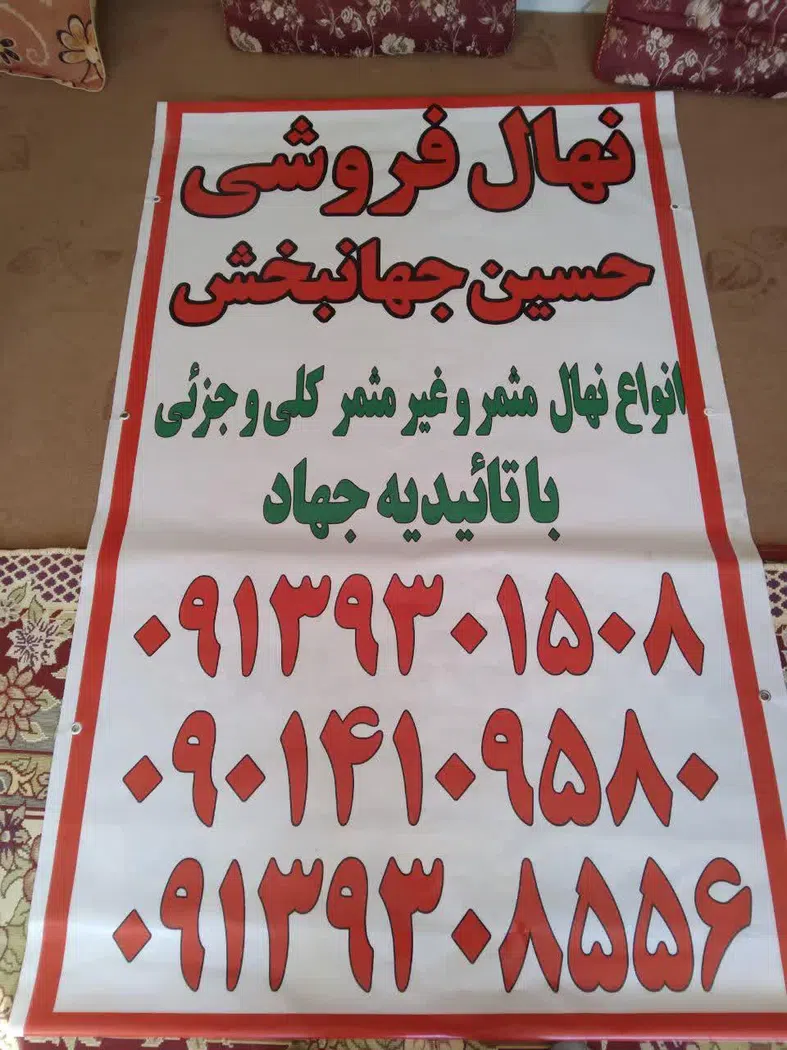 نهال فروشی
حسین جهانبخش
انواع نهال مثمر و غیر مثمر کلی و جزئی
با تائیدیه جهاد
۰۹۱۳۹۳۰۱۵۰۸
۰۹۰۱۴۱۰۹۵۸۰
۰۹۱۳۹۳۰۸۵۵۶